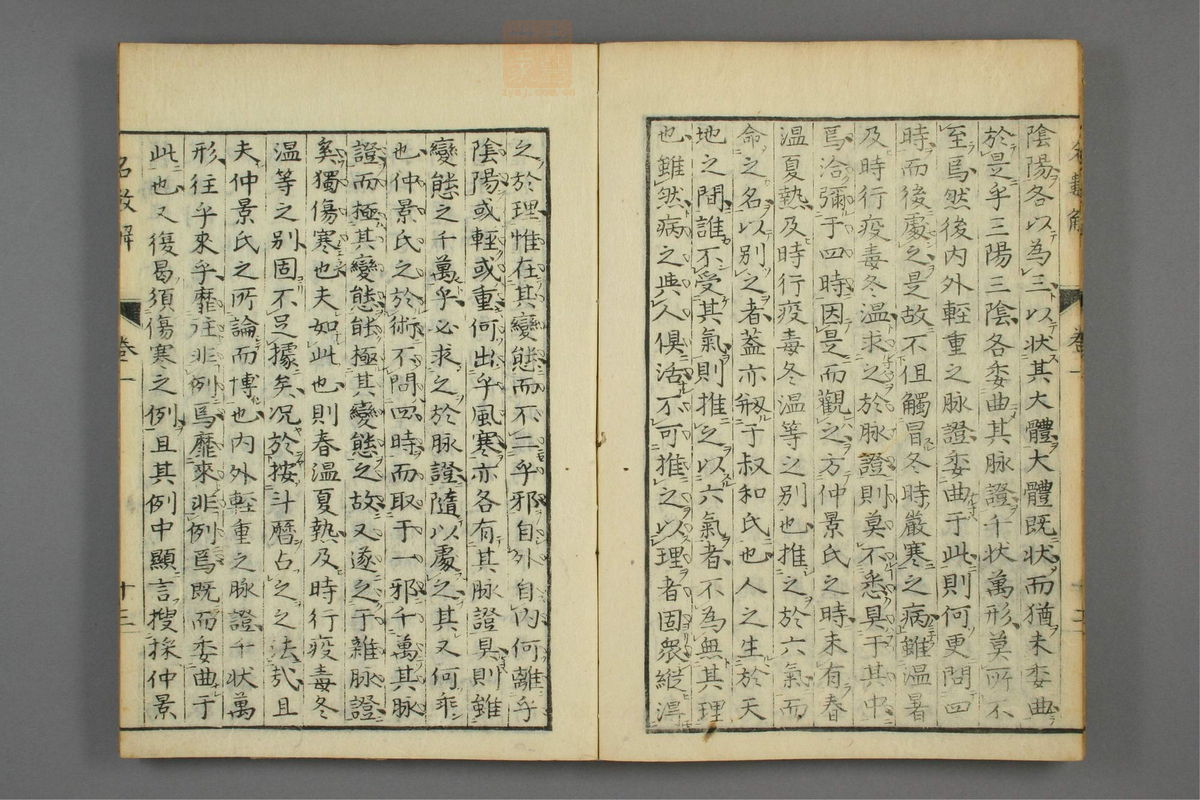 陰陽各以為三以状其大體大體既状而猶未委曲
於是乎三陽三陰各委曲其脉證千状萬形莫所不
至焉然後内外輕重之脉證委曲于此則何更問四
時而後處之是故不但觸冒冬時嚴寒之病雖温暑
及時行疫毒冬温求之於脉證則莫不悉具于其中
焉洽彌于四時因是而觀之方仲景氏之時未有春
温夏熱及時行疫毒冬温等之别也推之於六氣而
命之名以别之者蓋亦剏于叔和氏也人之生於天
地之間誰不受其氣則推之以六氣者不為無其理
也雖然病之與人俱活不可推之以理者固衆縱渾
之於理惟在其變態而不二乎邪自外自内何離乎
陰陽或輕或重何出乎風寒亦各有其脉證見則雖
變態之千萬乎必求之於脉證隨以處之其又何乖
也仲景氏之於術不問四時而取于一邪千萬其脉
證而極其變態能極其變態之故又遂之于雜脉證
奚獨傷寒也夫如此也則春温夏熱及時行疫毒冬
温等之别固不足據矣况於按斗暦占之之法㢤且
夫仲景氏之所論而博也内外輕重之脉證千状萬
形往乎來乎靡往非例焉靡來非例焉既而委曲于
此也又復曷須傷寒之例且其例中顯言搜採仲景
名數解 卷一 十三